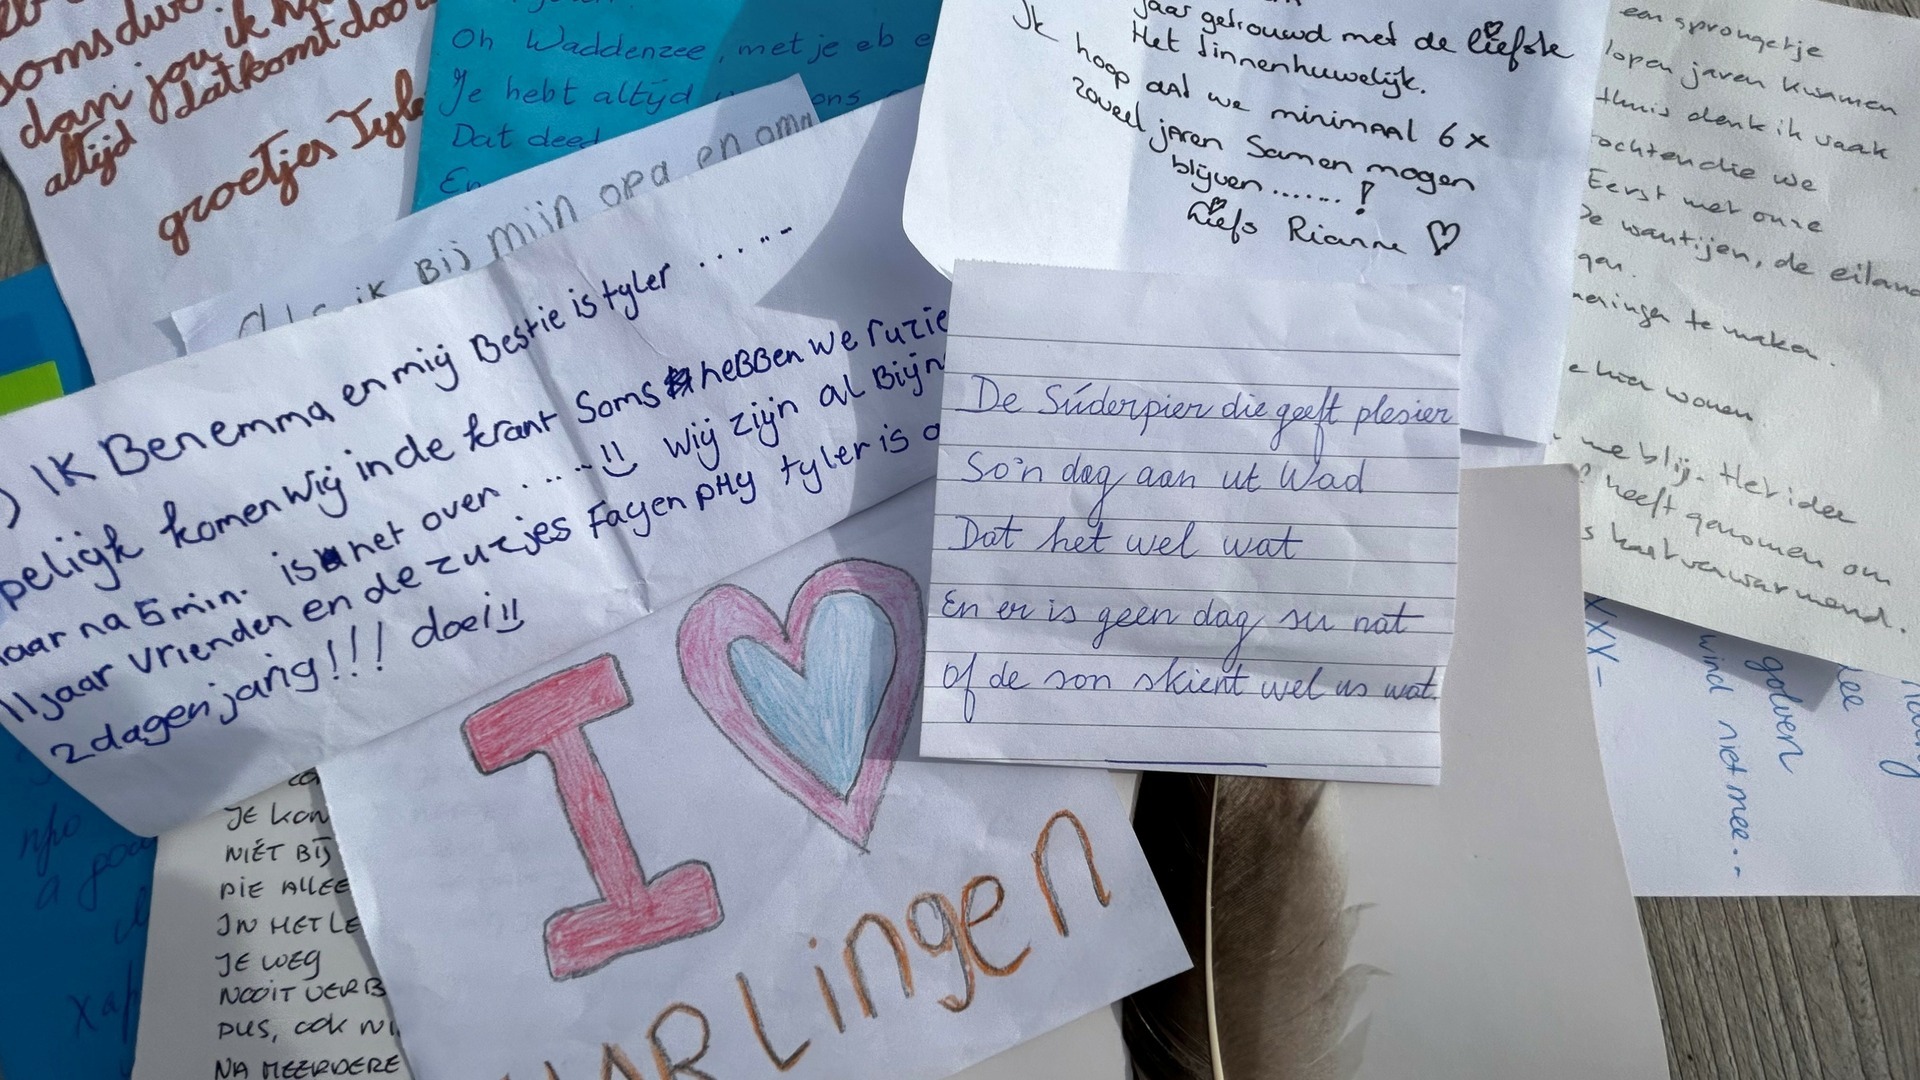 soms
dan jou ik
altijd datkomt door
groetjes Tyle
Oh Waddenzee, met je eb e
Je hebt altijd ons
Dat deed
En
ik Bij mijn opa en oma
jaar getrouwd met de liefste
Het tinnenhuwelijk.
Ik hoop dat we minimaal 6 x
zoveel jaren Samen mogen
blijven.......!
Liefs Rianne ♡
een sprongetje
lopen jaren kwamen
thuis denk ik vaak
ochten die we
Eerst met onze
De wantijen, de eiland
gen.
neringen te maken.
e hier wonen
me blij. Her ider
heeft genomen om
s hartverwarmend.
) IK Ben emma en mij Bestie is tyler ......
pelijk komen wij in de krant Soms heBBen we ruzie
aar na 5 min. is het over ..... wij zijn al Bijn
11 jaar vrienden en de zuzjes Fayen pHy tyler is o
2 dagen jarig!!! doei!!
De Súderpier die geeft plesier
So'n dag aan ut Wad
Dat het wel wat
En er is geen dag su nat
of de son skient wel us wat.
I
HARLingen
JE KON
NIÉT BIJ
DIE ALLEE
IN HET LE
JE WEG
NOOIT VERB
DUS, OOK NI
NA MEERDERE
XXX-
wind niet mee..
golven